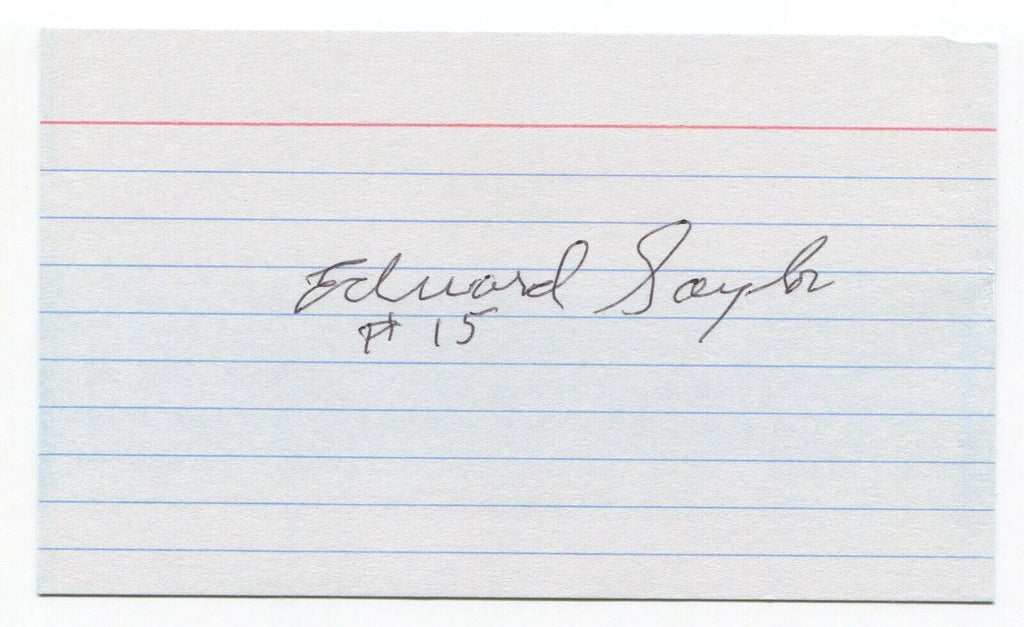 Edward Saylor
# 15